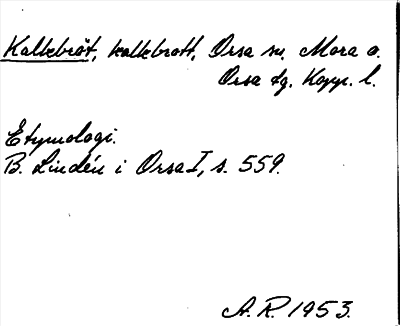 Kallebröt, kallebrott, Orsa sn. Mora o.
Orsa tg. Kopp. l.
Etymologi.
B. Lindén i Orsa I, s. 559.
A.R. 1953.